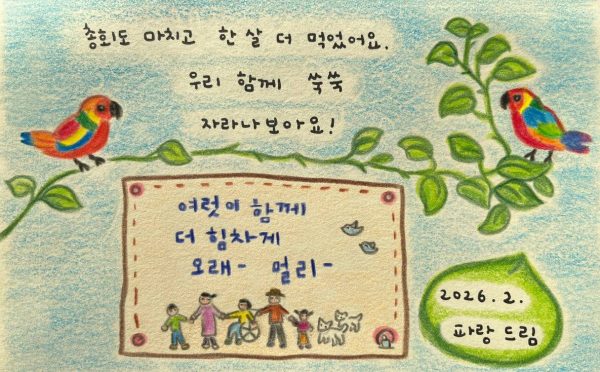 총회도 마치고 한 살 더 먹었어요.
우리 함께 쑥쑥
자라나보아요!
여럿이 함께
더 힘차게
오래- 멀리-
2026. 2.
파랑 드림